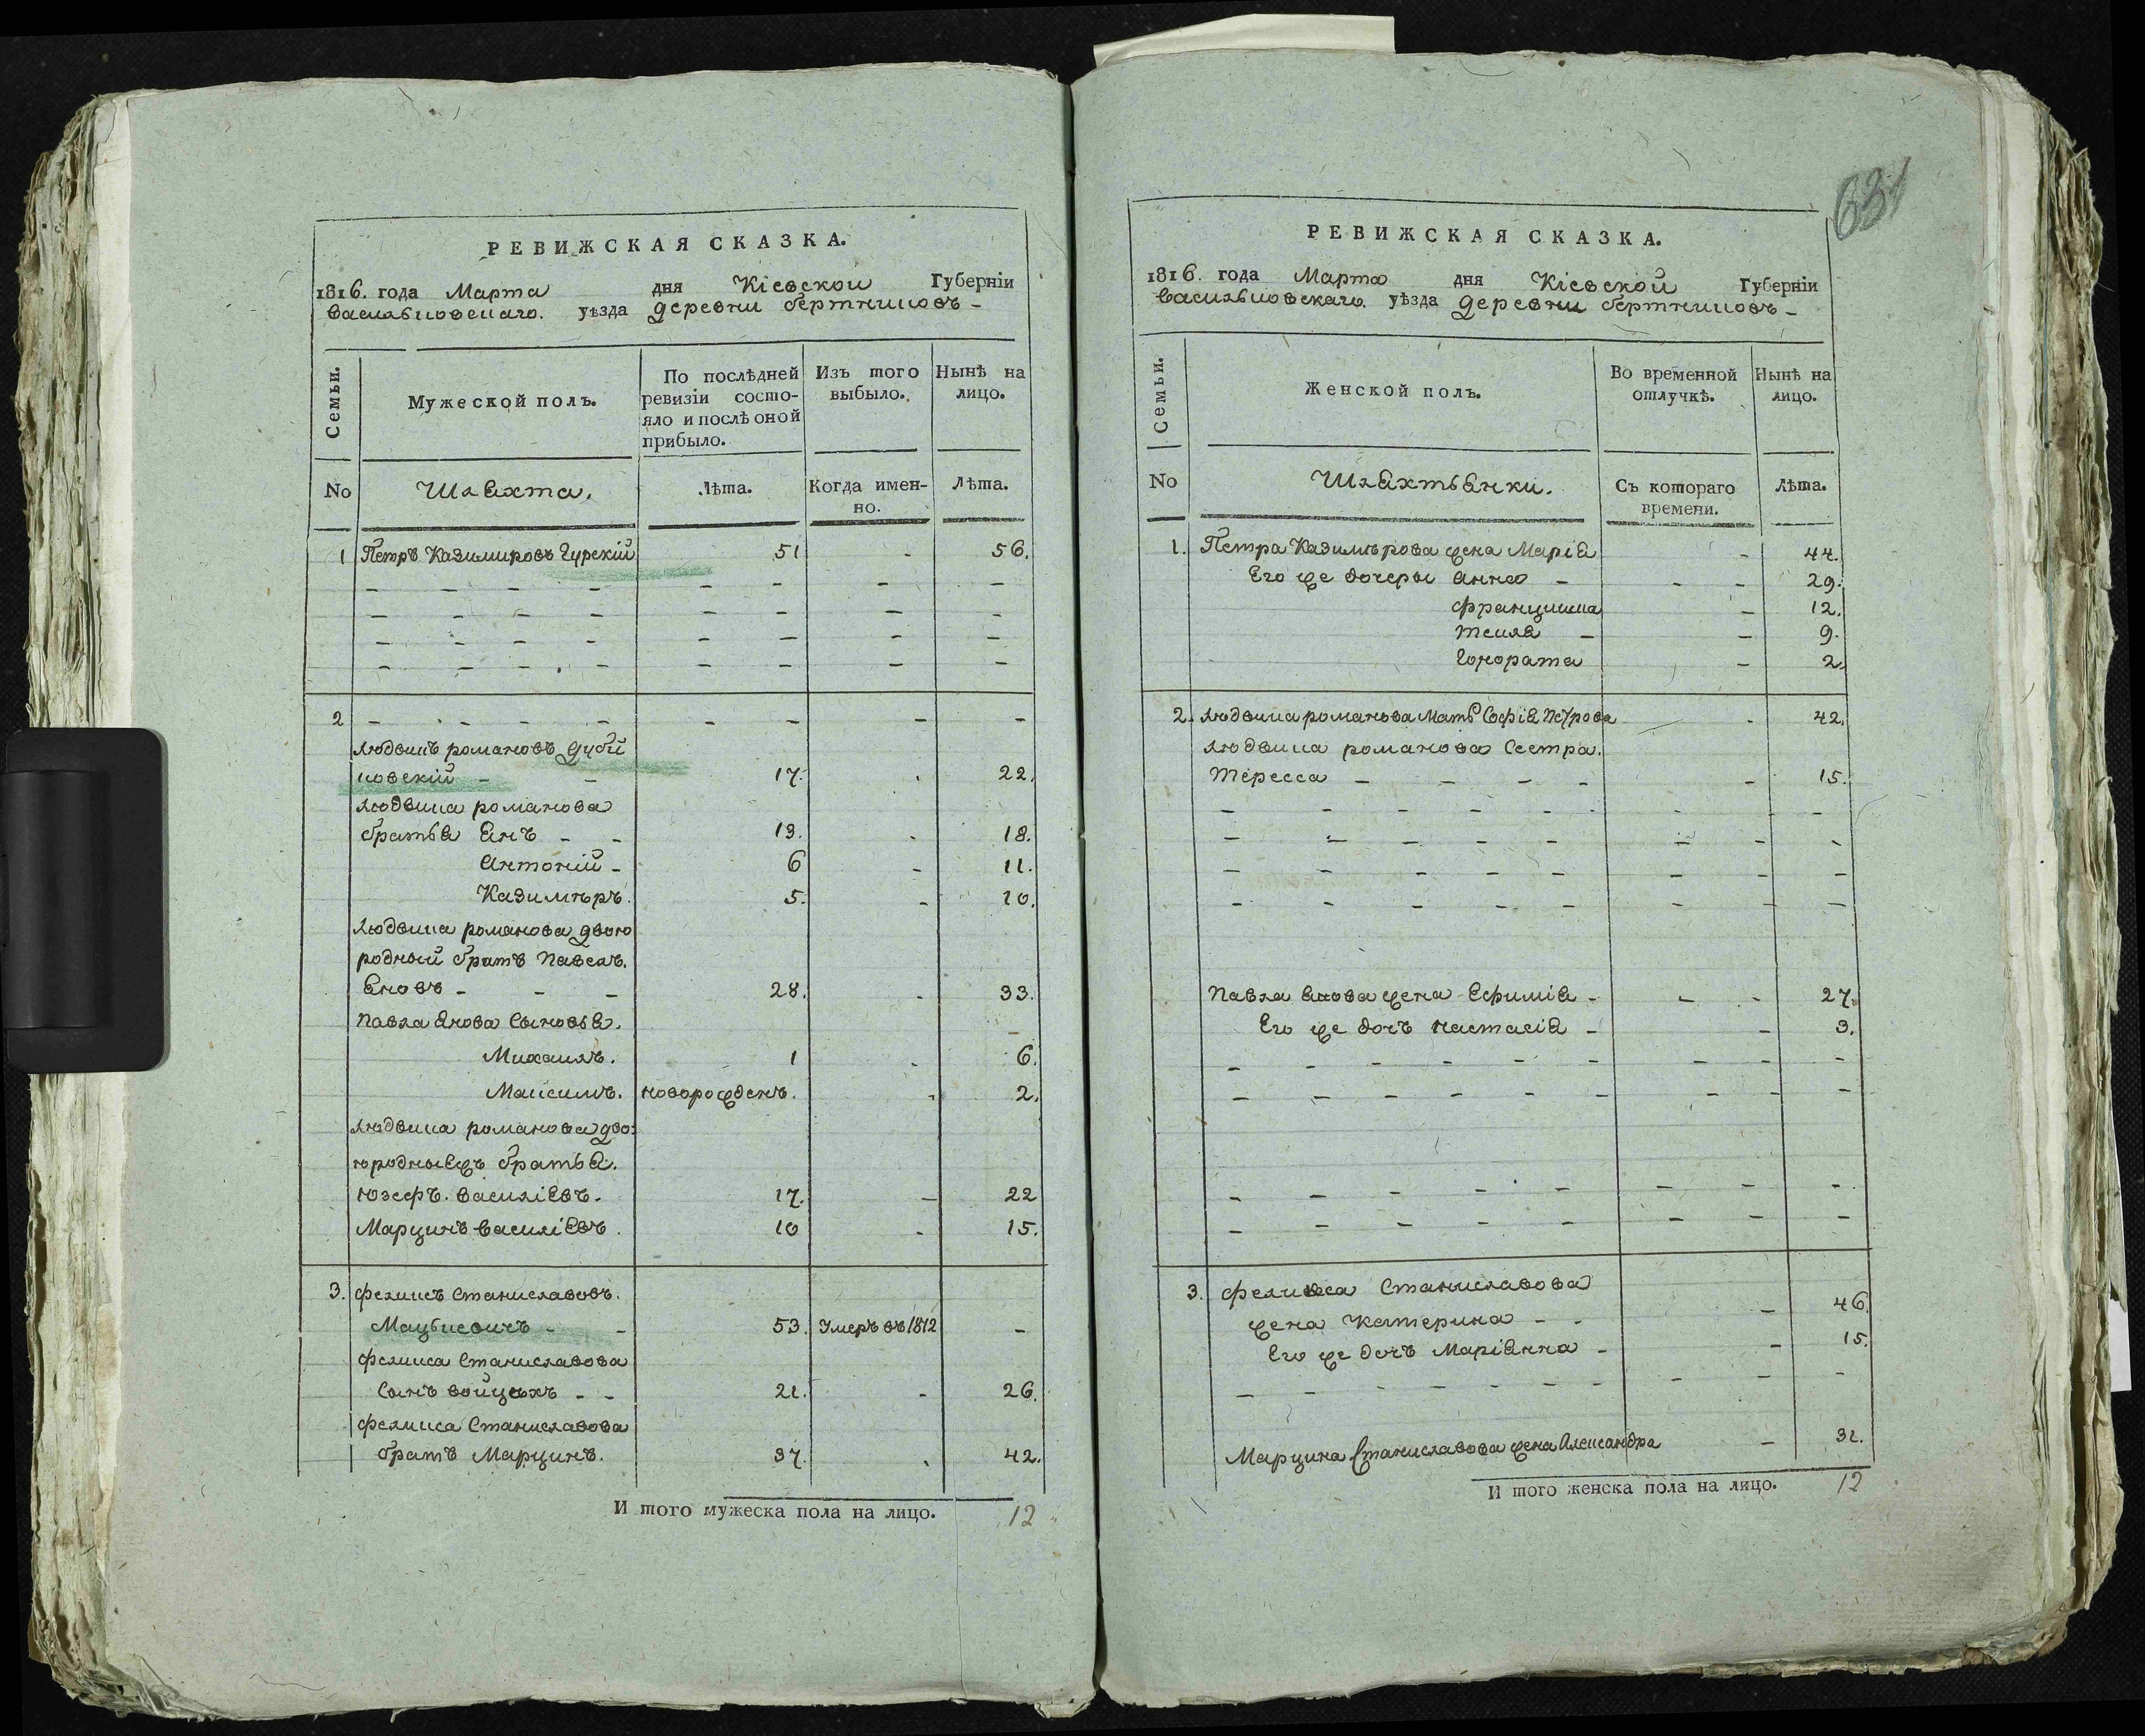 РЕВИЖСКАЯ СКАЗКА.
1816. года Марта дня Кіевской Губерніи
Васильковскаго. уѣзда деревни бертниковъ -
Семьи.
Мужеской полъ.
По послѣдней ревизіи состо-
яло и послѣ оной
прибыло.
Изъ того
выбыло.
Нынѣ на
лицо.
No
Шляхта.
Лѣта.
Когда имен-
но.
Лѣта.
1 Петръ Казимировъ Гурскій 51 - 56.
2
Людвикъ романовъ дуби
новскій - - 17. 22.
Людвика романова
братья Янъ - - 13. 18.
Антоній - 6 - 11.
Казимѣръ. 5. - 10.
Людвика романова двою
родный братъ Павелъ.
Яновъ - - - 28. 33.
Павла Янова Сыновья.
Михаилъ. 1 6.
Максимъ. новорожденъ. 2.
Людвика романова дво:
юродныежъ братья.
Юзефъ. Василіевъ. 17. - 22
Марцинъ Василіевъ. 10 - 15.
3. Феликсъ Станиславовъ.
Мацькевичъ - - 53. Умеръ въ 1812 -
Феликса Станиславова
Сынъ войцехъ - - 21. - 26.
Феликса Станиславова
братъ Марцинъ. 37. 42.
И того мужеска пола на лицо. 12
631
РЕВИЖСКАЯ СКАЗКА.
1816. года Марта дня Кіевской Губерніи
Васильковскаго. уѣзда деревни бертниковъ -
Семьи.
Женской полъ.
Во временной
отлучкѣ.
Нынѣ на
лицо.
No
Шляхтьянки.
Съ котораго
времени.
Лѣта.
1. Петра Казимѣрова жена Марія - 44.
Его же дочеры Анна - - - 29.
Францишка - 12.
текля - - 9.
Гонората - 2.
2. Людвика романова Мать Софія Петрова - 42.
Людвика романова Сестра.
Тересса - - - - - 15.
Павла Янова жена Ефимія - - - 27.
Его же дочъ настасія - - 3.
3. Феликса Станиславова
жена Катерина - - - 46.
Его же дочъ Маріянна - - 15.
Марцина Станиславова жена Александра - 32.
И того женска пола на лицо. 12